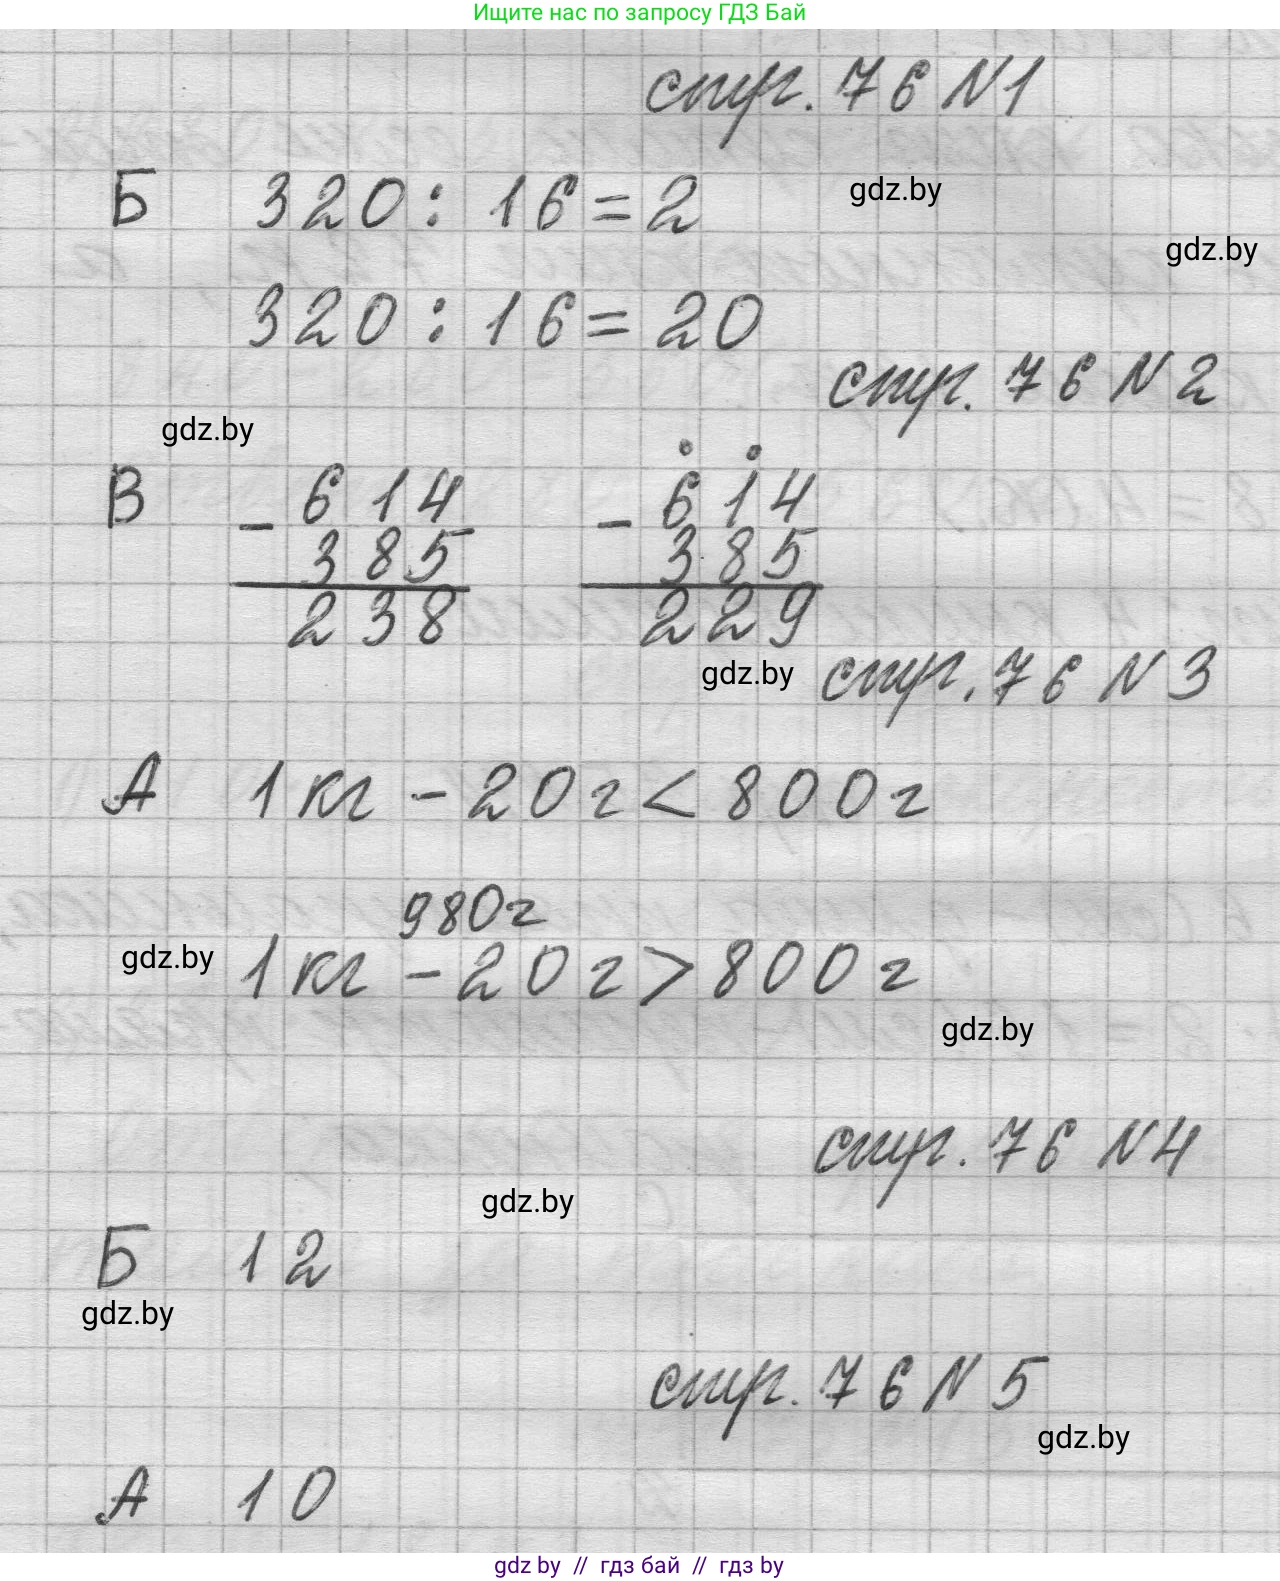 Ищите нас по запросу ГДЗ Бай
стр. 76 N1
Б 320 : 16 = 2
gdz.by
gdz.by
320 : 16 = 20
стр. 76 N2
gdz.by
В - 614 - 614
385 385
238 229
gdz.by
стр. 76 N3
А 1 кг - 20 г < 800 г
980 г
gdz.by
1 кг - 20 г > 800 г
gdz.by
стр. 76 N4
gdz.by
Б 12
gdz.by
стр. 76 N5
gdz.by
А 10
gdz by // гдз бай // гдз by